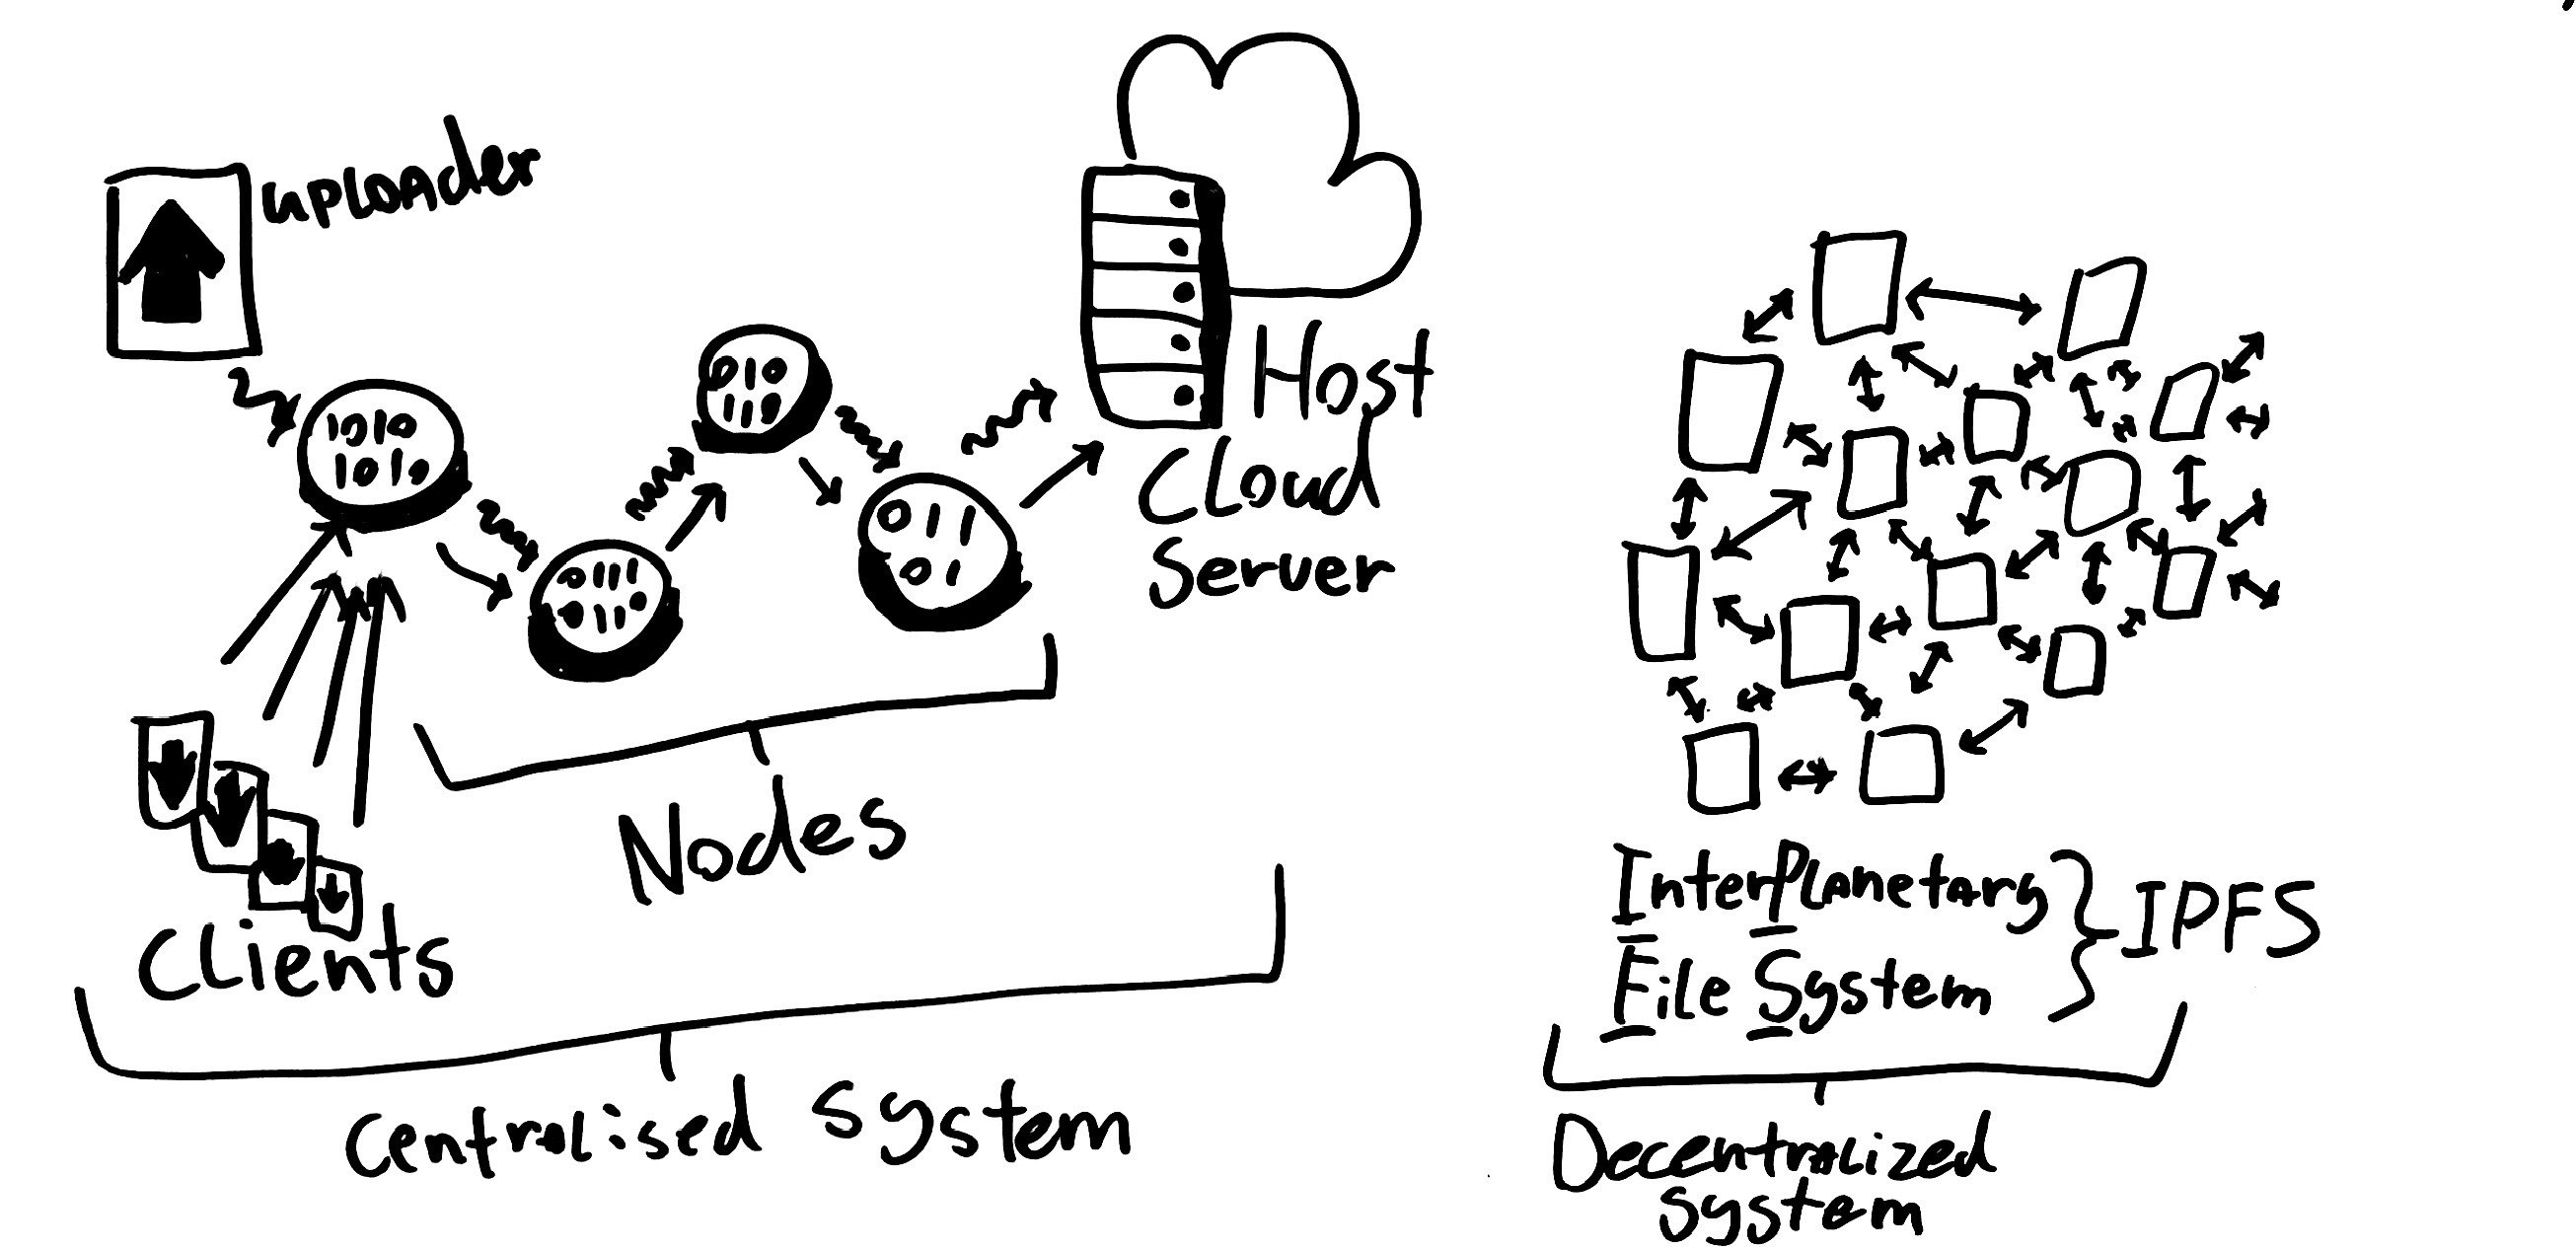 uploader
1010
1010
010
110
0111
0110
011
01
Host
Cloud
Server
Nodes
Clients
Centralised System
InterPlanetary
File System
IPFS
Decentralized
system